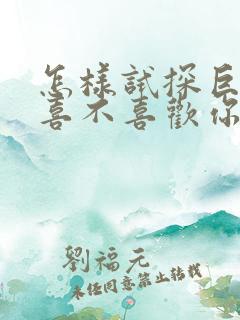 怎樣試探巨
喜不喜歡你
劉福元
未任同意禁止转載